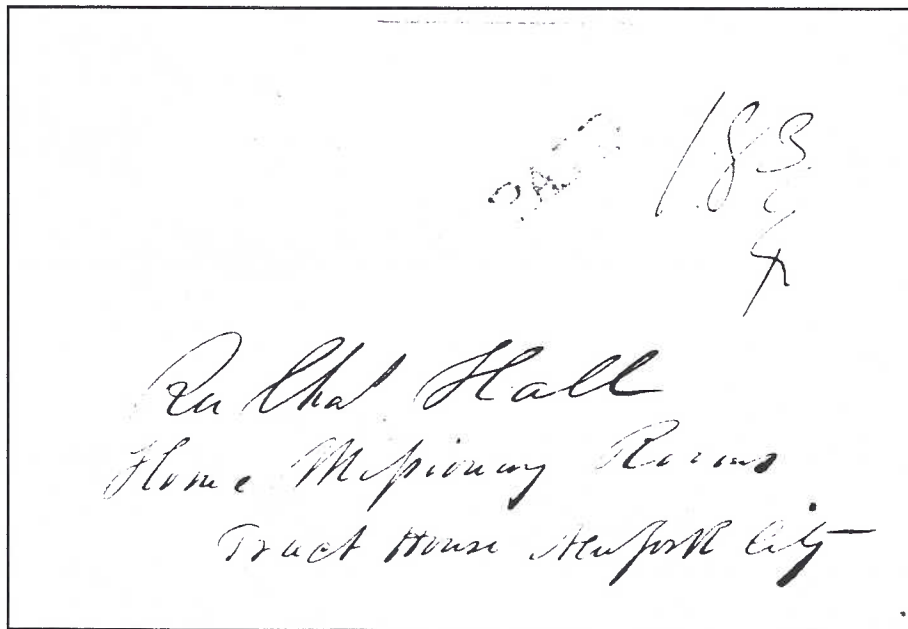 PAID
183
X
Rev Chas Hall
Home Missionary Rooms
Tract House New York City